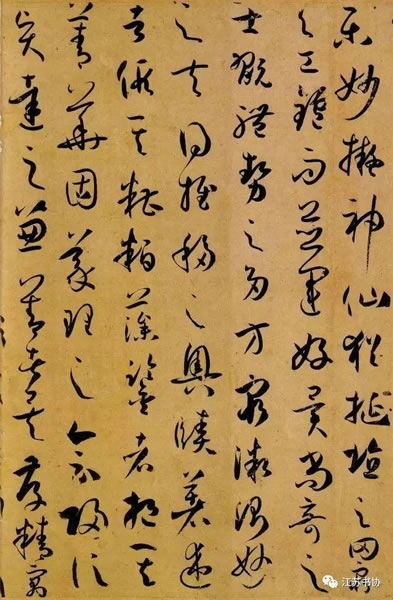 樂妙擬神仙猶挻埴之罔窮
與工鑪而並運好異尚奇之
士翫體勢之多方窮微測妙
之夫得推移之奧賾著述
者假其糟粕藻鑒者挹其
菁華固義理之會歸信
賢達之兼善者矣存精寓
江苏书协